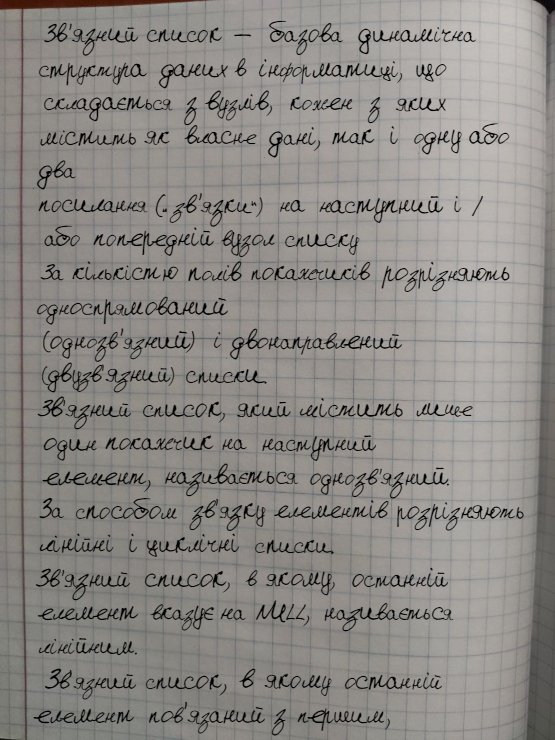 Зв'язний список — базова динамічна
структура даних в інформатиці, що
складається з вузлів, кожен з яких
містить як власне дані, так і одну або
два
посилання („зв'язки") на наступний і /
або попередній вузол списку
За кількістю полів покажчиків розрізняють
односпрямований
(однозв'язний) і двонаправлений
(двузв'язний) списки.
Зв'язний список, який містить лише
один покажчик на наступний
елемент, називається однозв'язний.
За способом зв'язку елементів розрізняють
лінійні і циклічні списки.
Зв'язний список, в якому, останній
елемент вказує на NULL, називається
лінійним.
Зв'язний список, в якому останній
елемент пов'язаний з першим,